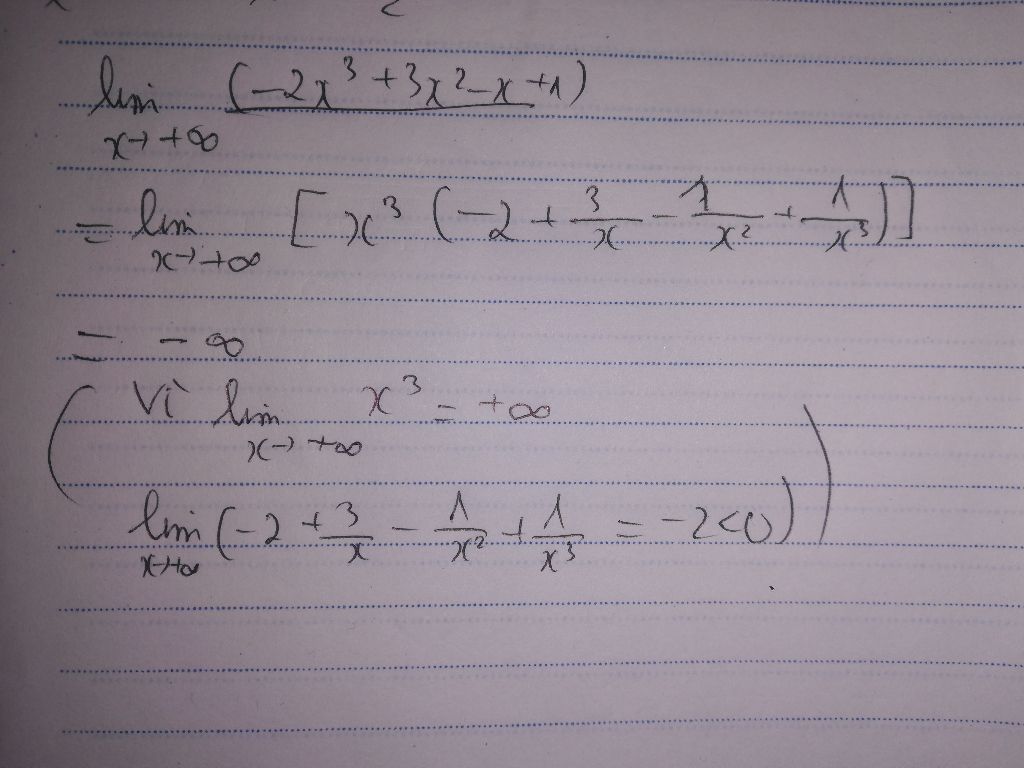 lim (-2x³ + 3x² - x + 1)
x→+∞
= lim [x³ (-2 + 3/x - 1/x² + 1/x³)]
x→+∞
= -∞
(Vì lim x³ = +∞
x→+∞
lim (-2 + 3/x - 1/x² + 1/x³ = -2<0))
x→+∞